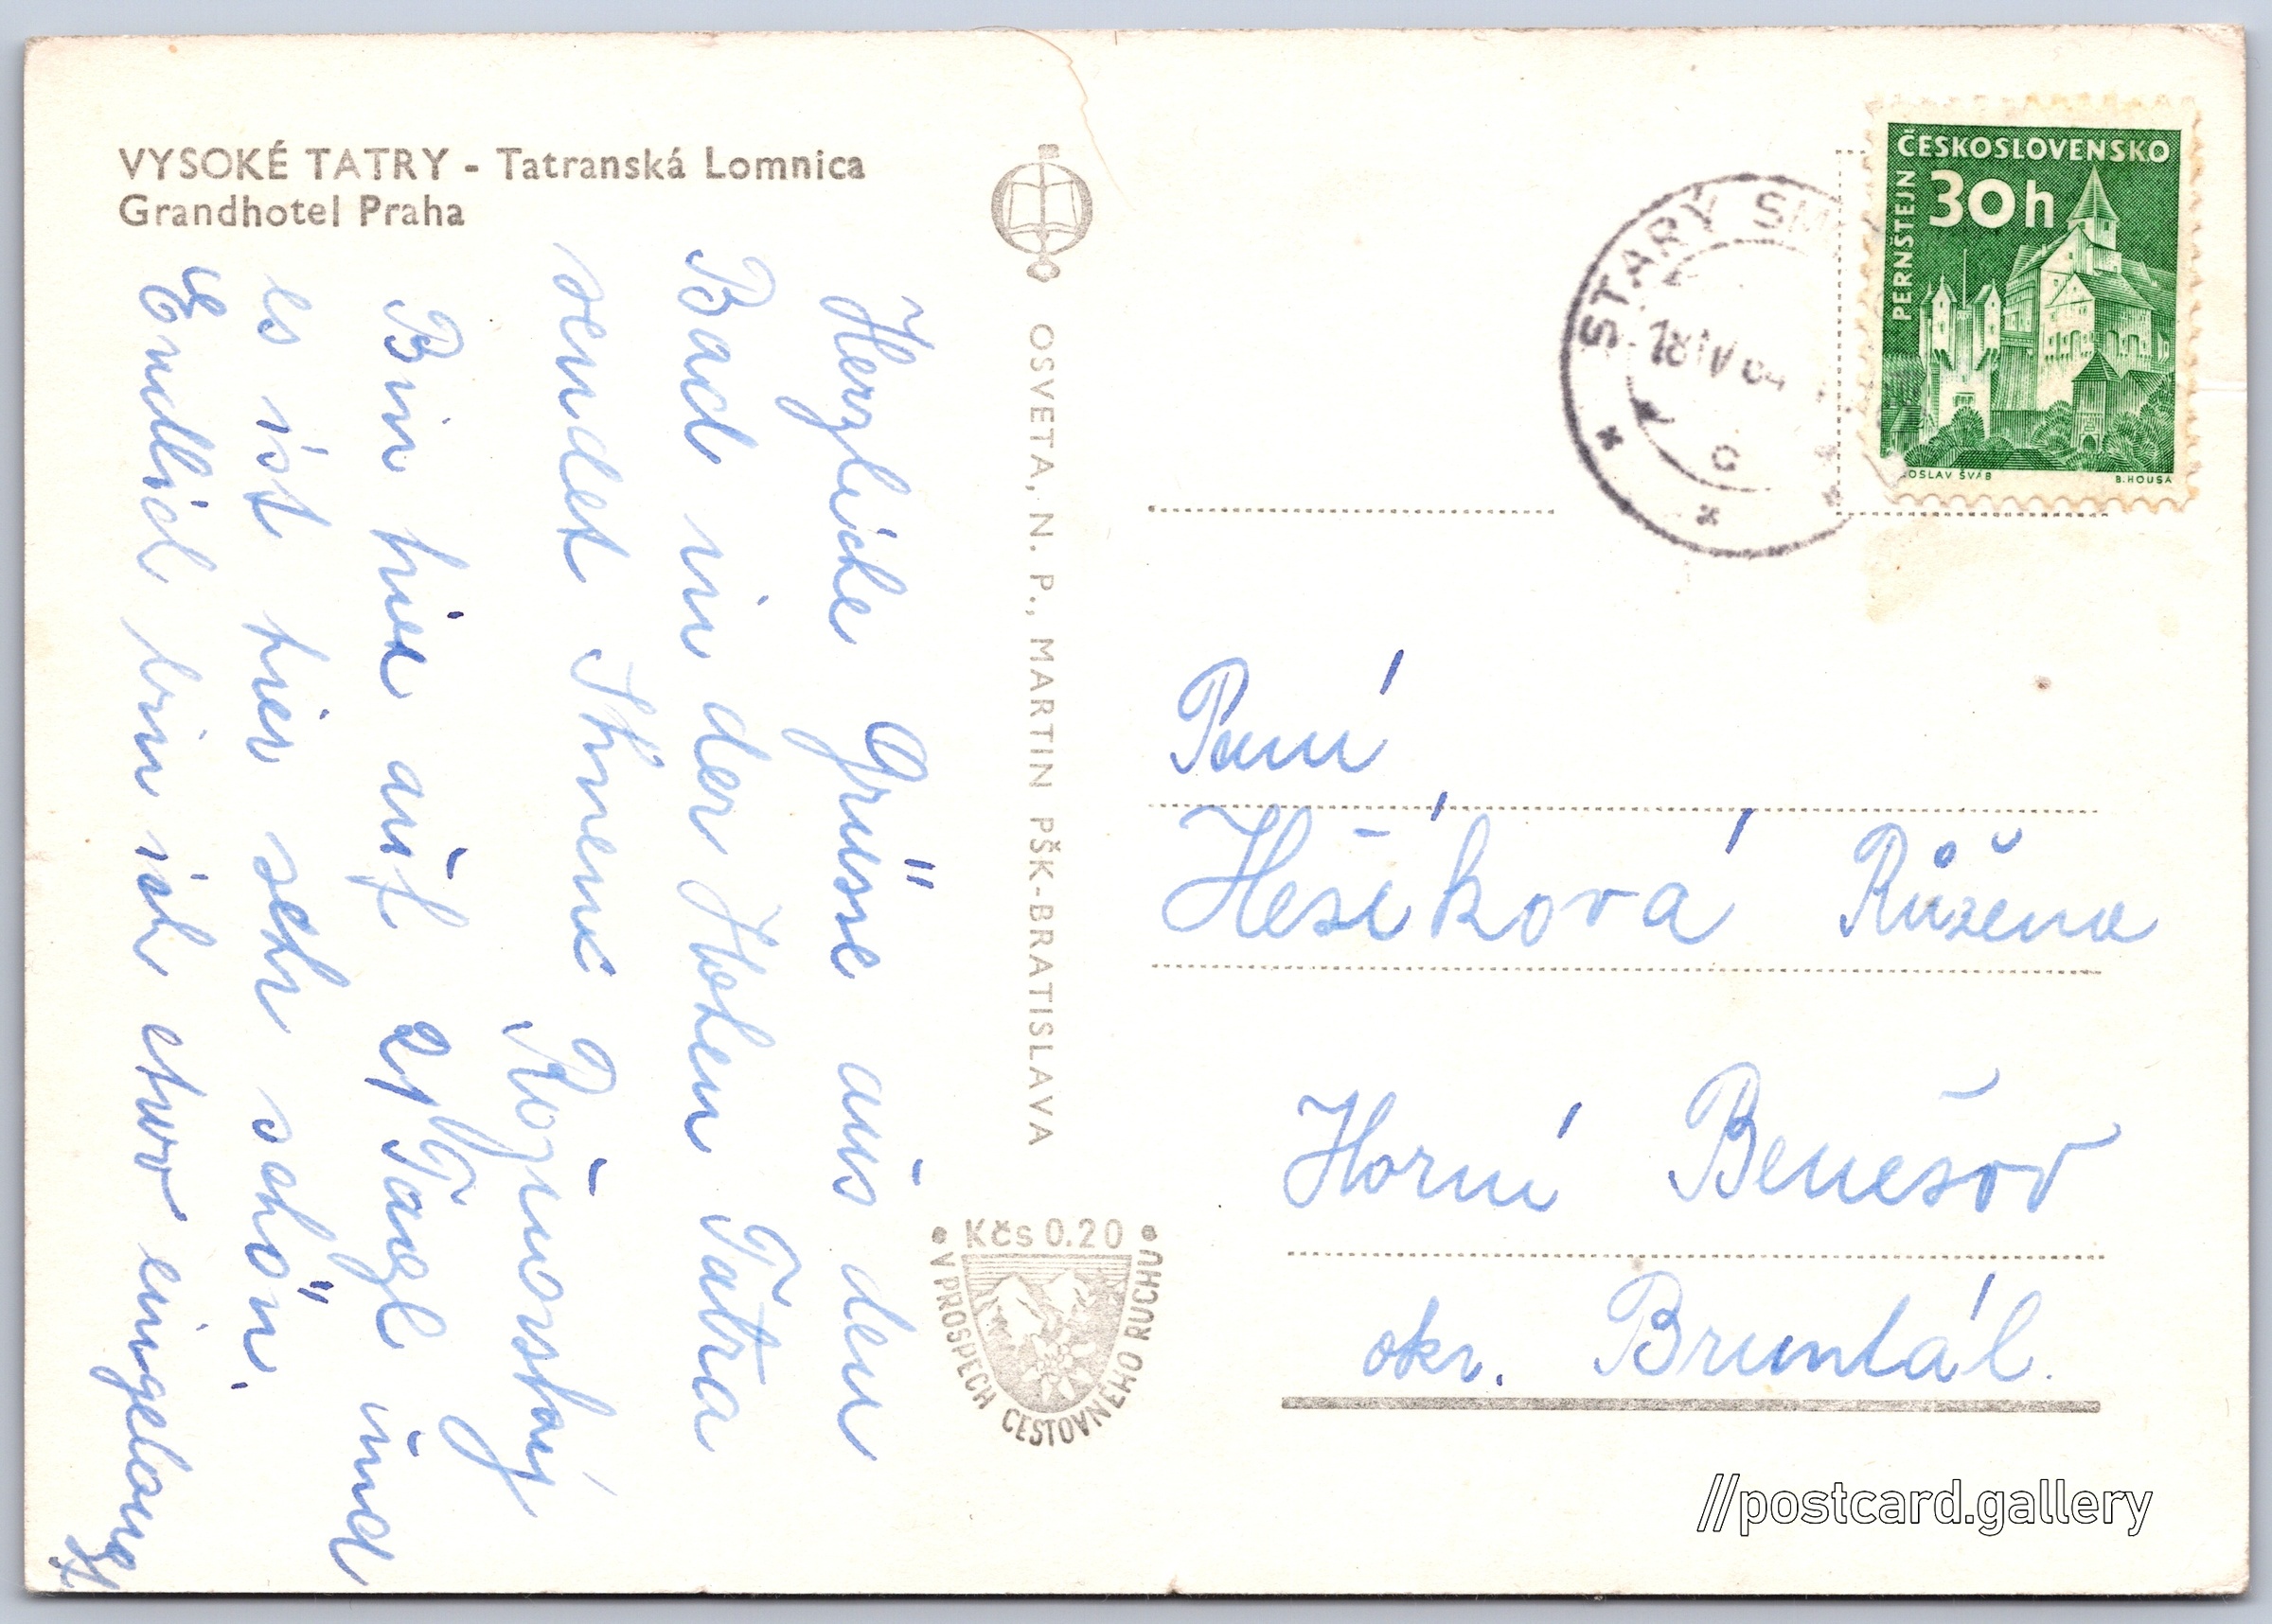 VYSOKÉ TATRY - Tatranská Lomnica
Grandhotel Praha
Herzliche Grüsse aus den
Bad in der Hohen Tatra
sendet Ihnen
Bin hier auf 21 Tage und
es ist hier sehr schön.
Endlich bin ich etwo eingelangt
OSVETA, N. P., MARTIN PŠK-BRATISLAVA
Kčs 0.20
V PROSPECH CESTOVNÉHO RUCHU
STARÝ SM
18 IV 64
ČESKOSLOVENSKO
30h
PERNŠTEJN
OSLAV ŠVÁB
B. HOUSA
Paní
Hešíková Růžena
Horní Benešov
okr. Bruntál.
//postcard.gallery